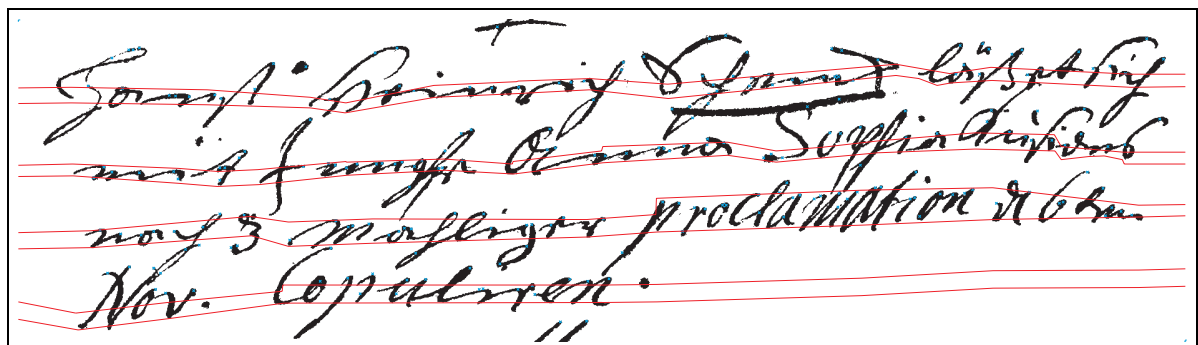 Heinrich Schmid läßet sich
mit Jungfr Anna Sophia
nach 3 mahliger proclamation d 6ten
Nov. Copuliren.